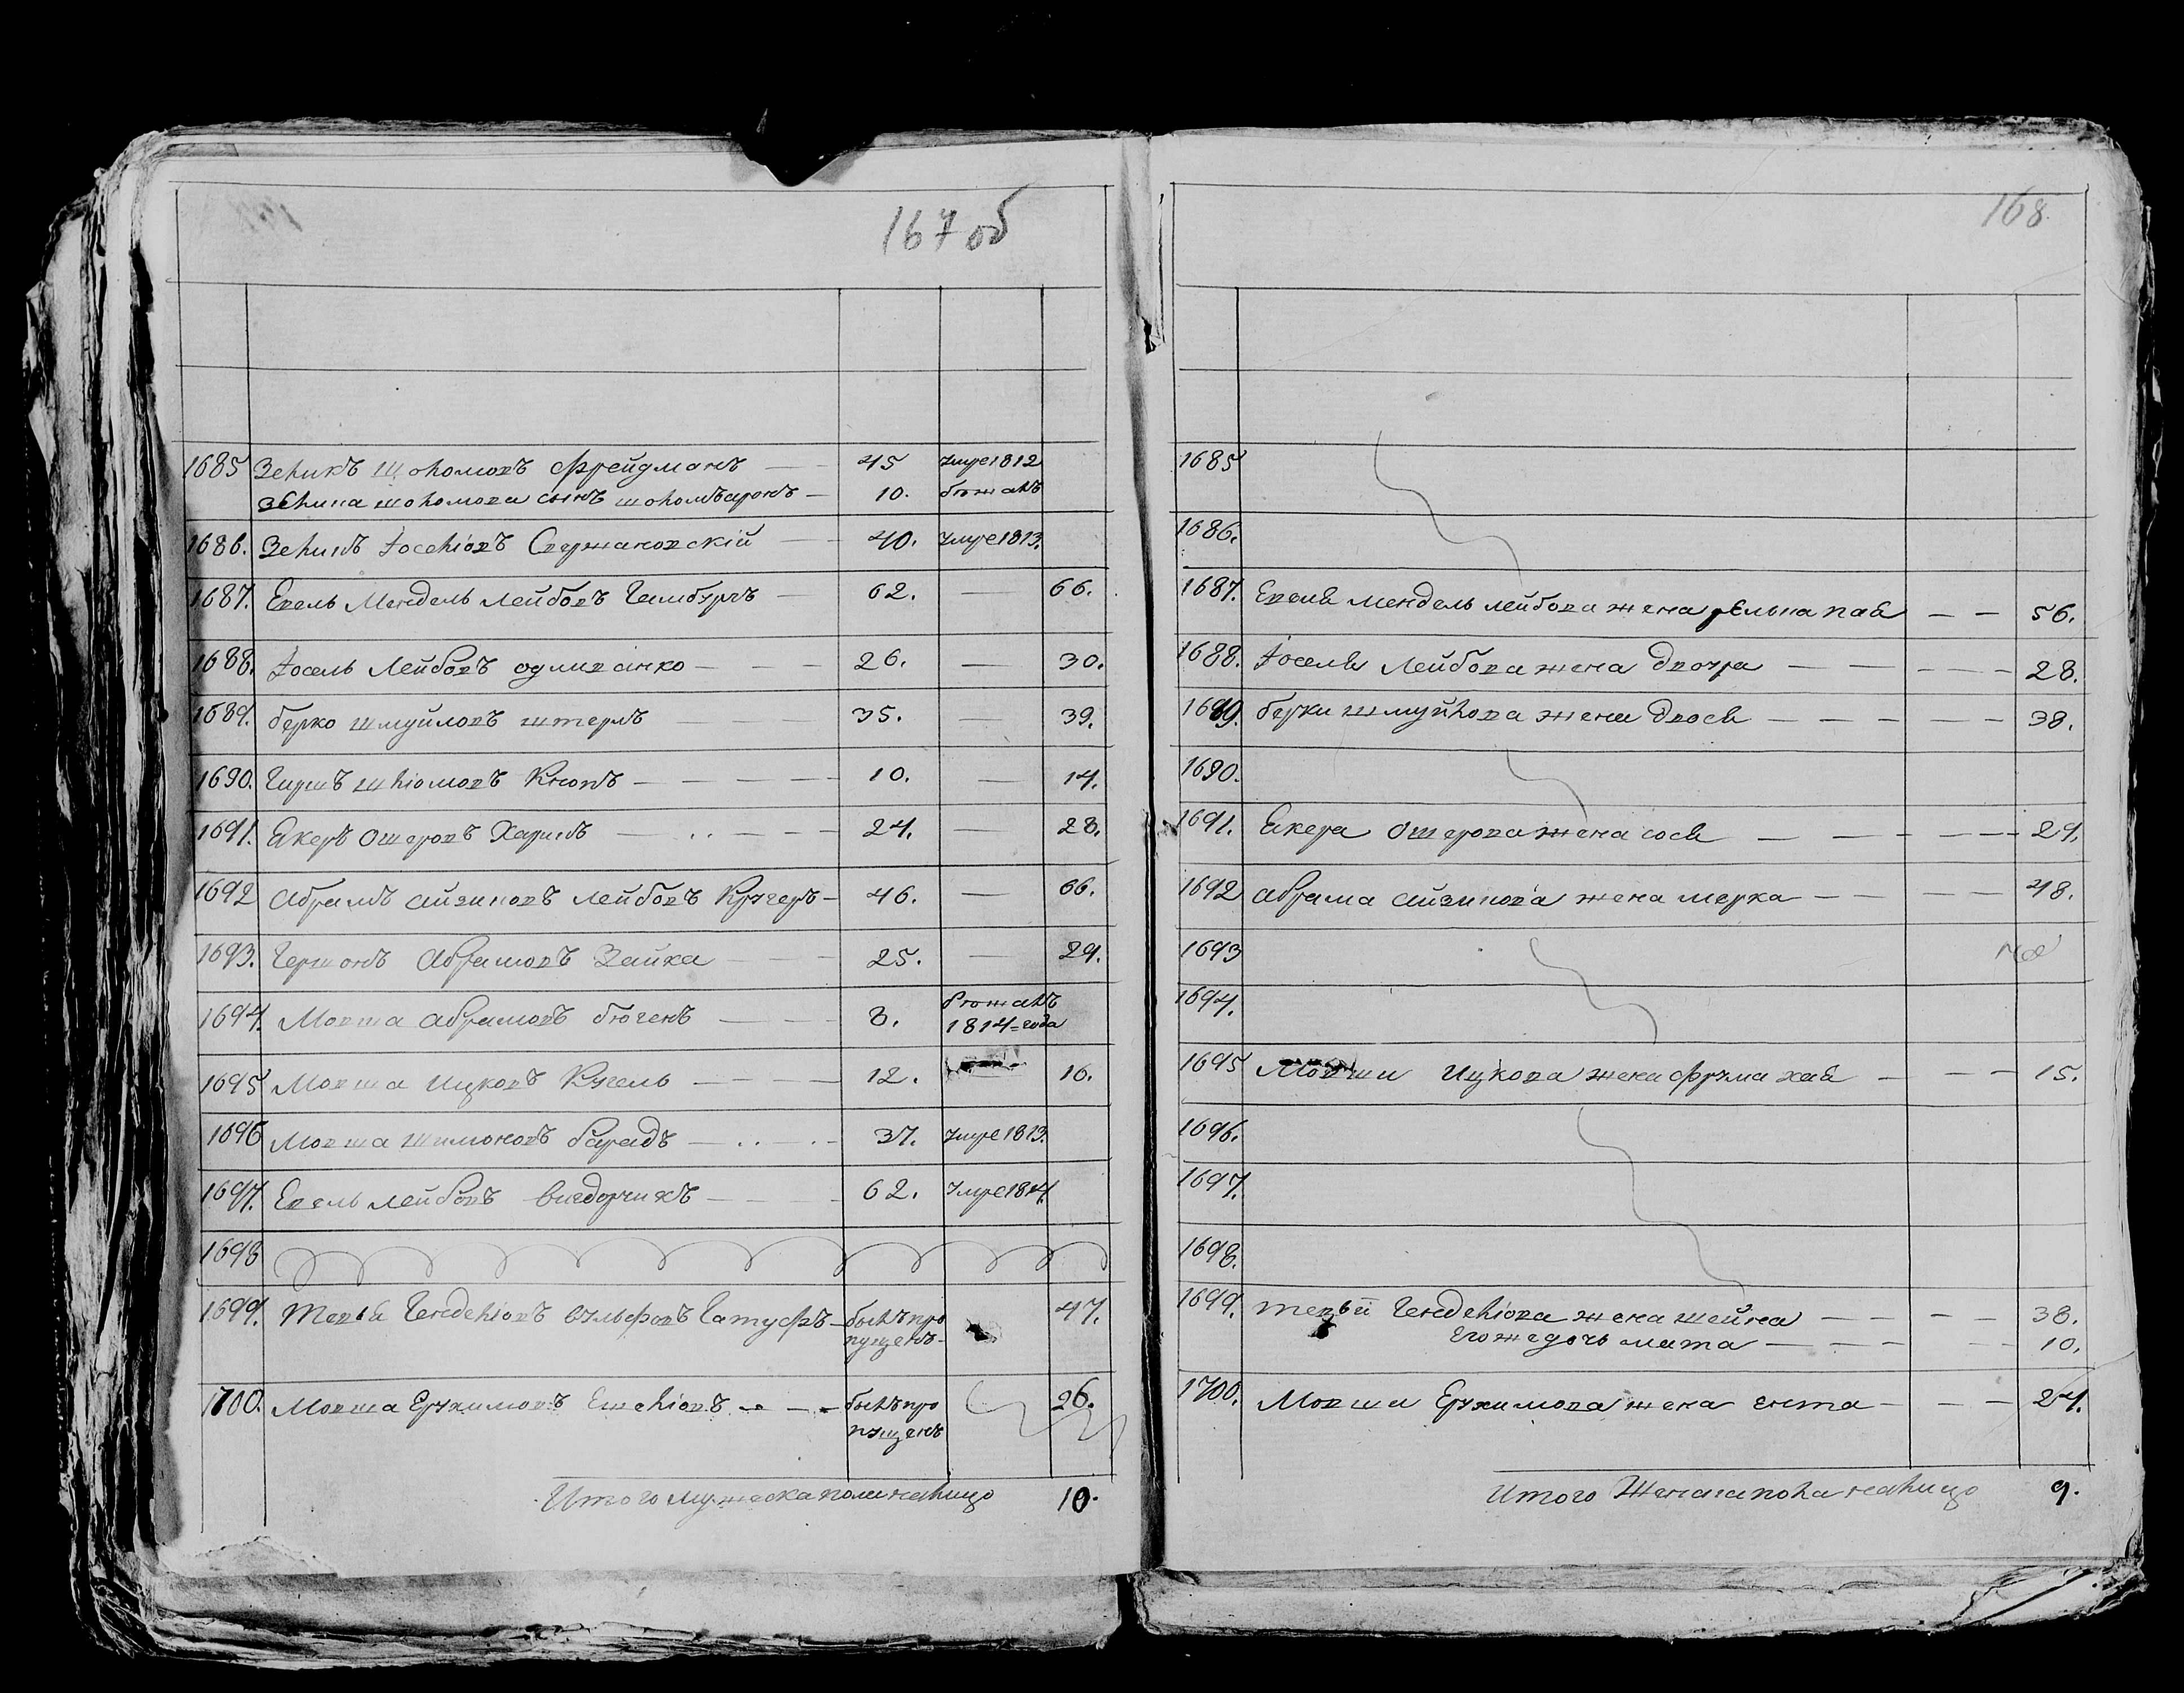 167 об
1685 Зеликъ Шоломовъ Фрейдманъ — 45 Умре 1812
Зелика Шоломова сынъ Шоломъаронъ — 10. бѣжалъ
1686. Зеликъ Іоселіовъ Свержановскій — 40. Умре 1813.
1687. Евель Мендель Лейбовъ Гимбургъ — 62. — 66.
1688. Іосель Лейбовъ — 26. — 30.
1689. Берко Шмуйловъ Штернъ 35. — 39.
1690. Гиршъ Шліомовъ Кнопъ — 10. — 14.
1691. Екеръ Ошеровъ Харикъ — 24. 28.
1692 Абрамъ Айзиковъ Лейбовъ Кучеръ — 46. — 66.
1693. Гершонъ Абрамовъ Зайка 25. — 29.
1694. Мовша Абрамовъ — 8. бѣжалъ
1814 = года
1695 Мовша Ицковъ Кугель — 12. — 16.
1696 Мовша Шимоновъ — 37. Умре 1813.
1697. Евель Лейбовъ — 62. Умре 1814.
1698
1699. Тевья Генделіовъ Вульфовъ — былъ про 47.
пущенъ —
1700. Мовша Ерухимовъ — былъ про 26.
пущенъ
Итого мужеска пола налицо 10.
168
1685
1686.
1687. Евеля Мендель Лейбова жена — 56.
1688. Іоселя Лейбова жена Двойра — 28.
1689. Берки Шмуйлова жена Дрося — 38.
1690.
1691. Екера Ошерова жена Сося — 29.
1692 Абрама Айзикова жена Мерка — 48.
1693
1694.
1695 Мовши Ицкова жена Фрума Хая — 15.
1696.
1697.
1698.
1699. Тевьи Генделіова жена Шейна — 38.
Его же дочь Злата — 10.
1700. Мовши Ерухимова жена Ента — 24.
Итого Женска пола налицо 9.